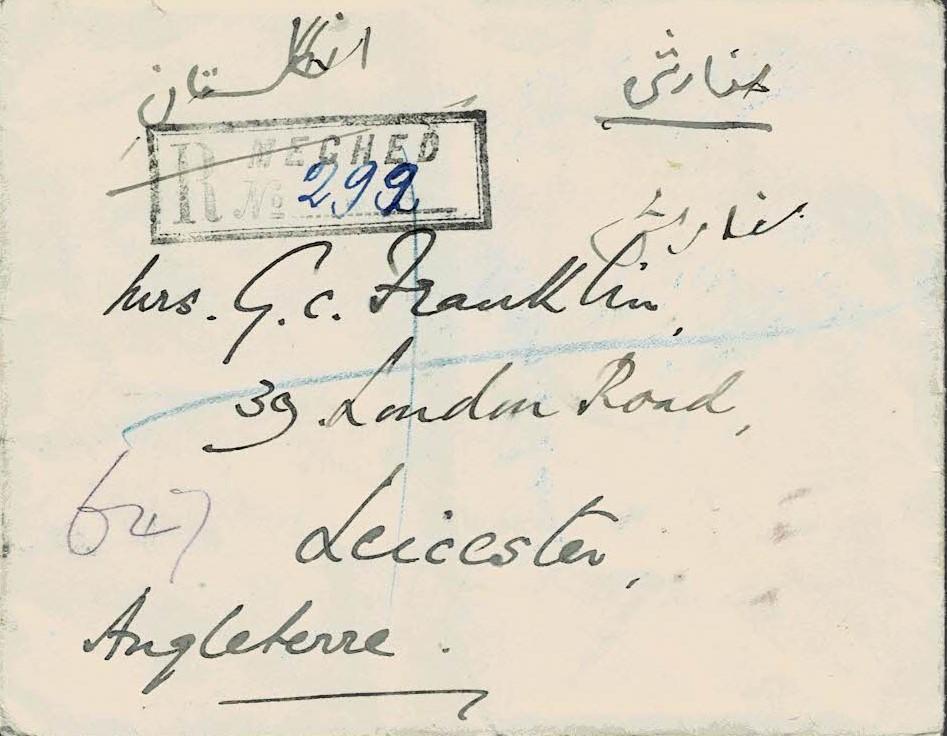 انگلستان
سفارشی
R MECHED
№ 299
سفارشی
Mrs. G. C. Franklin,
39 London Road,
Leicester,
Angleterre.